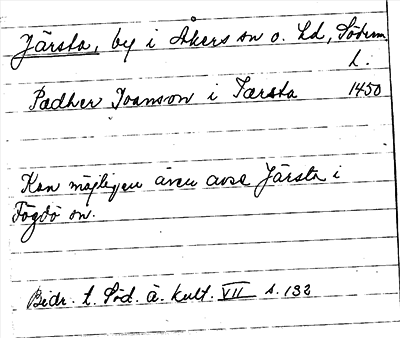 Järsta, by i Åkers sn o. hd, Söderm.
l.
Pædher Joansson i Iærsta 1450
Kan möjligen även avse Järsta i
Fogdö sn.
Bidr. t. Söd. ä. kult. VII s. 132